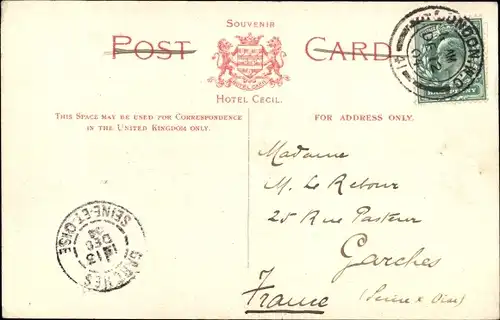 SOUVENIR
POST CARD
HOTEL CECIL
HOTEL CECIL.
THIS SPACE MAY BE USED FOR CORRESPONDENCE
IN THE UNITED KINGDOM ONLY.
FOR ADDRESS ONLY.
LONDON
HALF PENNY
Madame
M. Le Retour
25 Rue Pasteur
Garches
France (Seine & Oise)
GARCHES
SEINE-ET-OISE
13
DEC